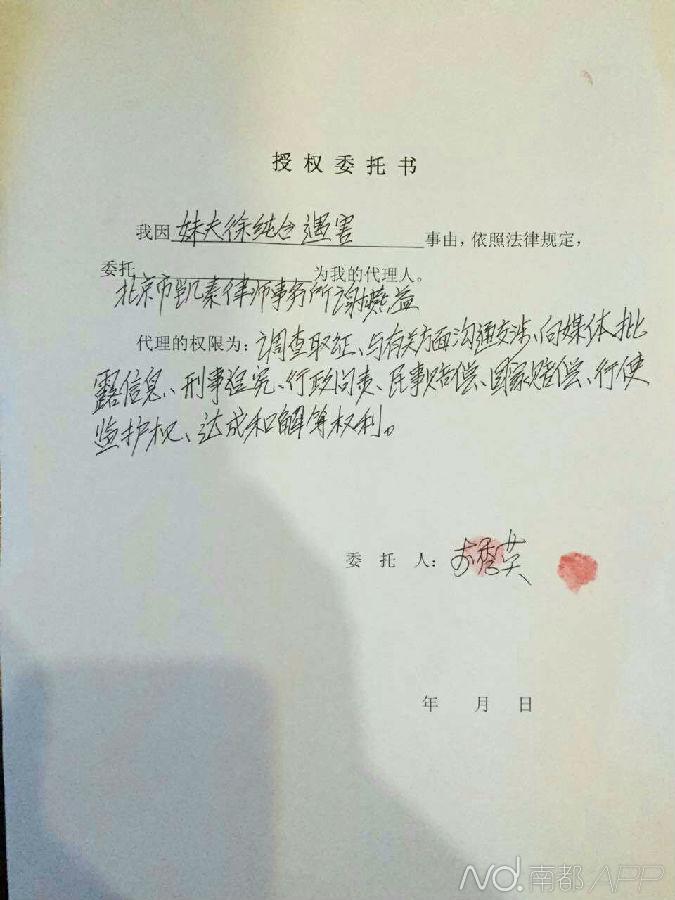 授权委托书
我因妹夫徐纯合遇害事由,依照法律规定,
委托 为我的代理人。
北京市凯泰律师事务所谢燕益
代理的权限为:调查取证、与有关方面沟通交涉、向媒体批
露信息、刑事追究、行政问责、民事赔偿、国家赔偿、行使
监护权、达成和解等权利。
委托人: 秀英
年 月 日
ND.南都APP